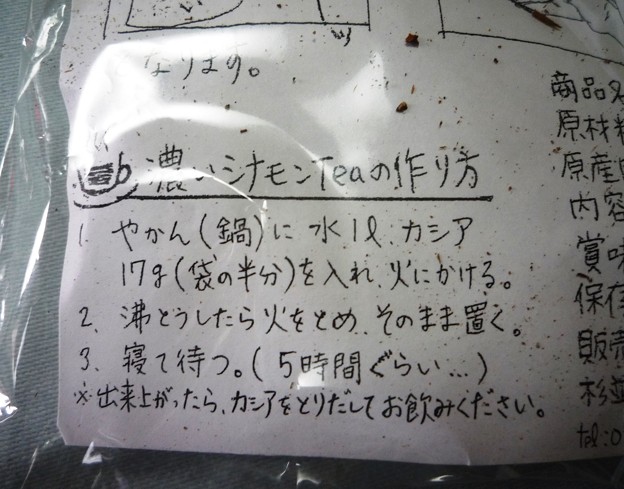 ッ
なります。
濃いシナモンTeaの作り方
1. やかん(鍋)に 水1ℓ カシア
17g(袋の半分)を入れ、火にかける。
2. 沸とうしたら火をとめ、そのまま置く。
3. 寝て待つ。(5時間ぐらい…)
※出来上がったら、カシアをとりだしてお飲みください。
商品名
原材料
原産
内容
賞味
保存
販売
杉並
tel:0